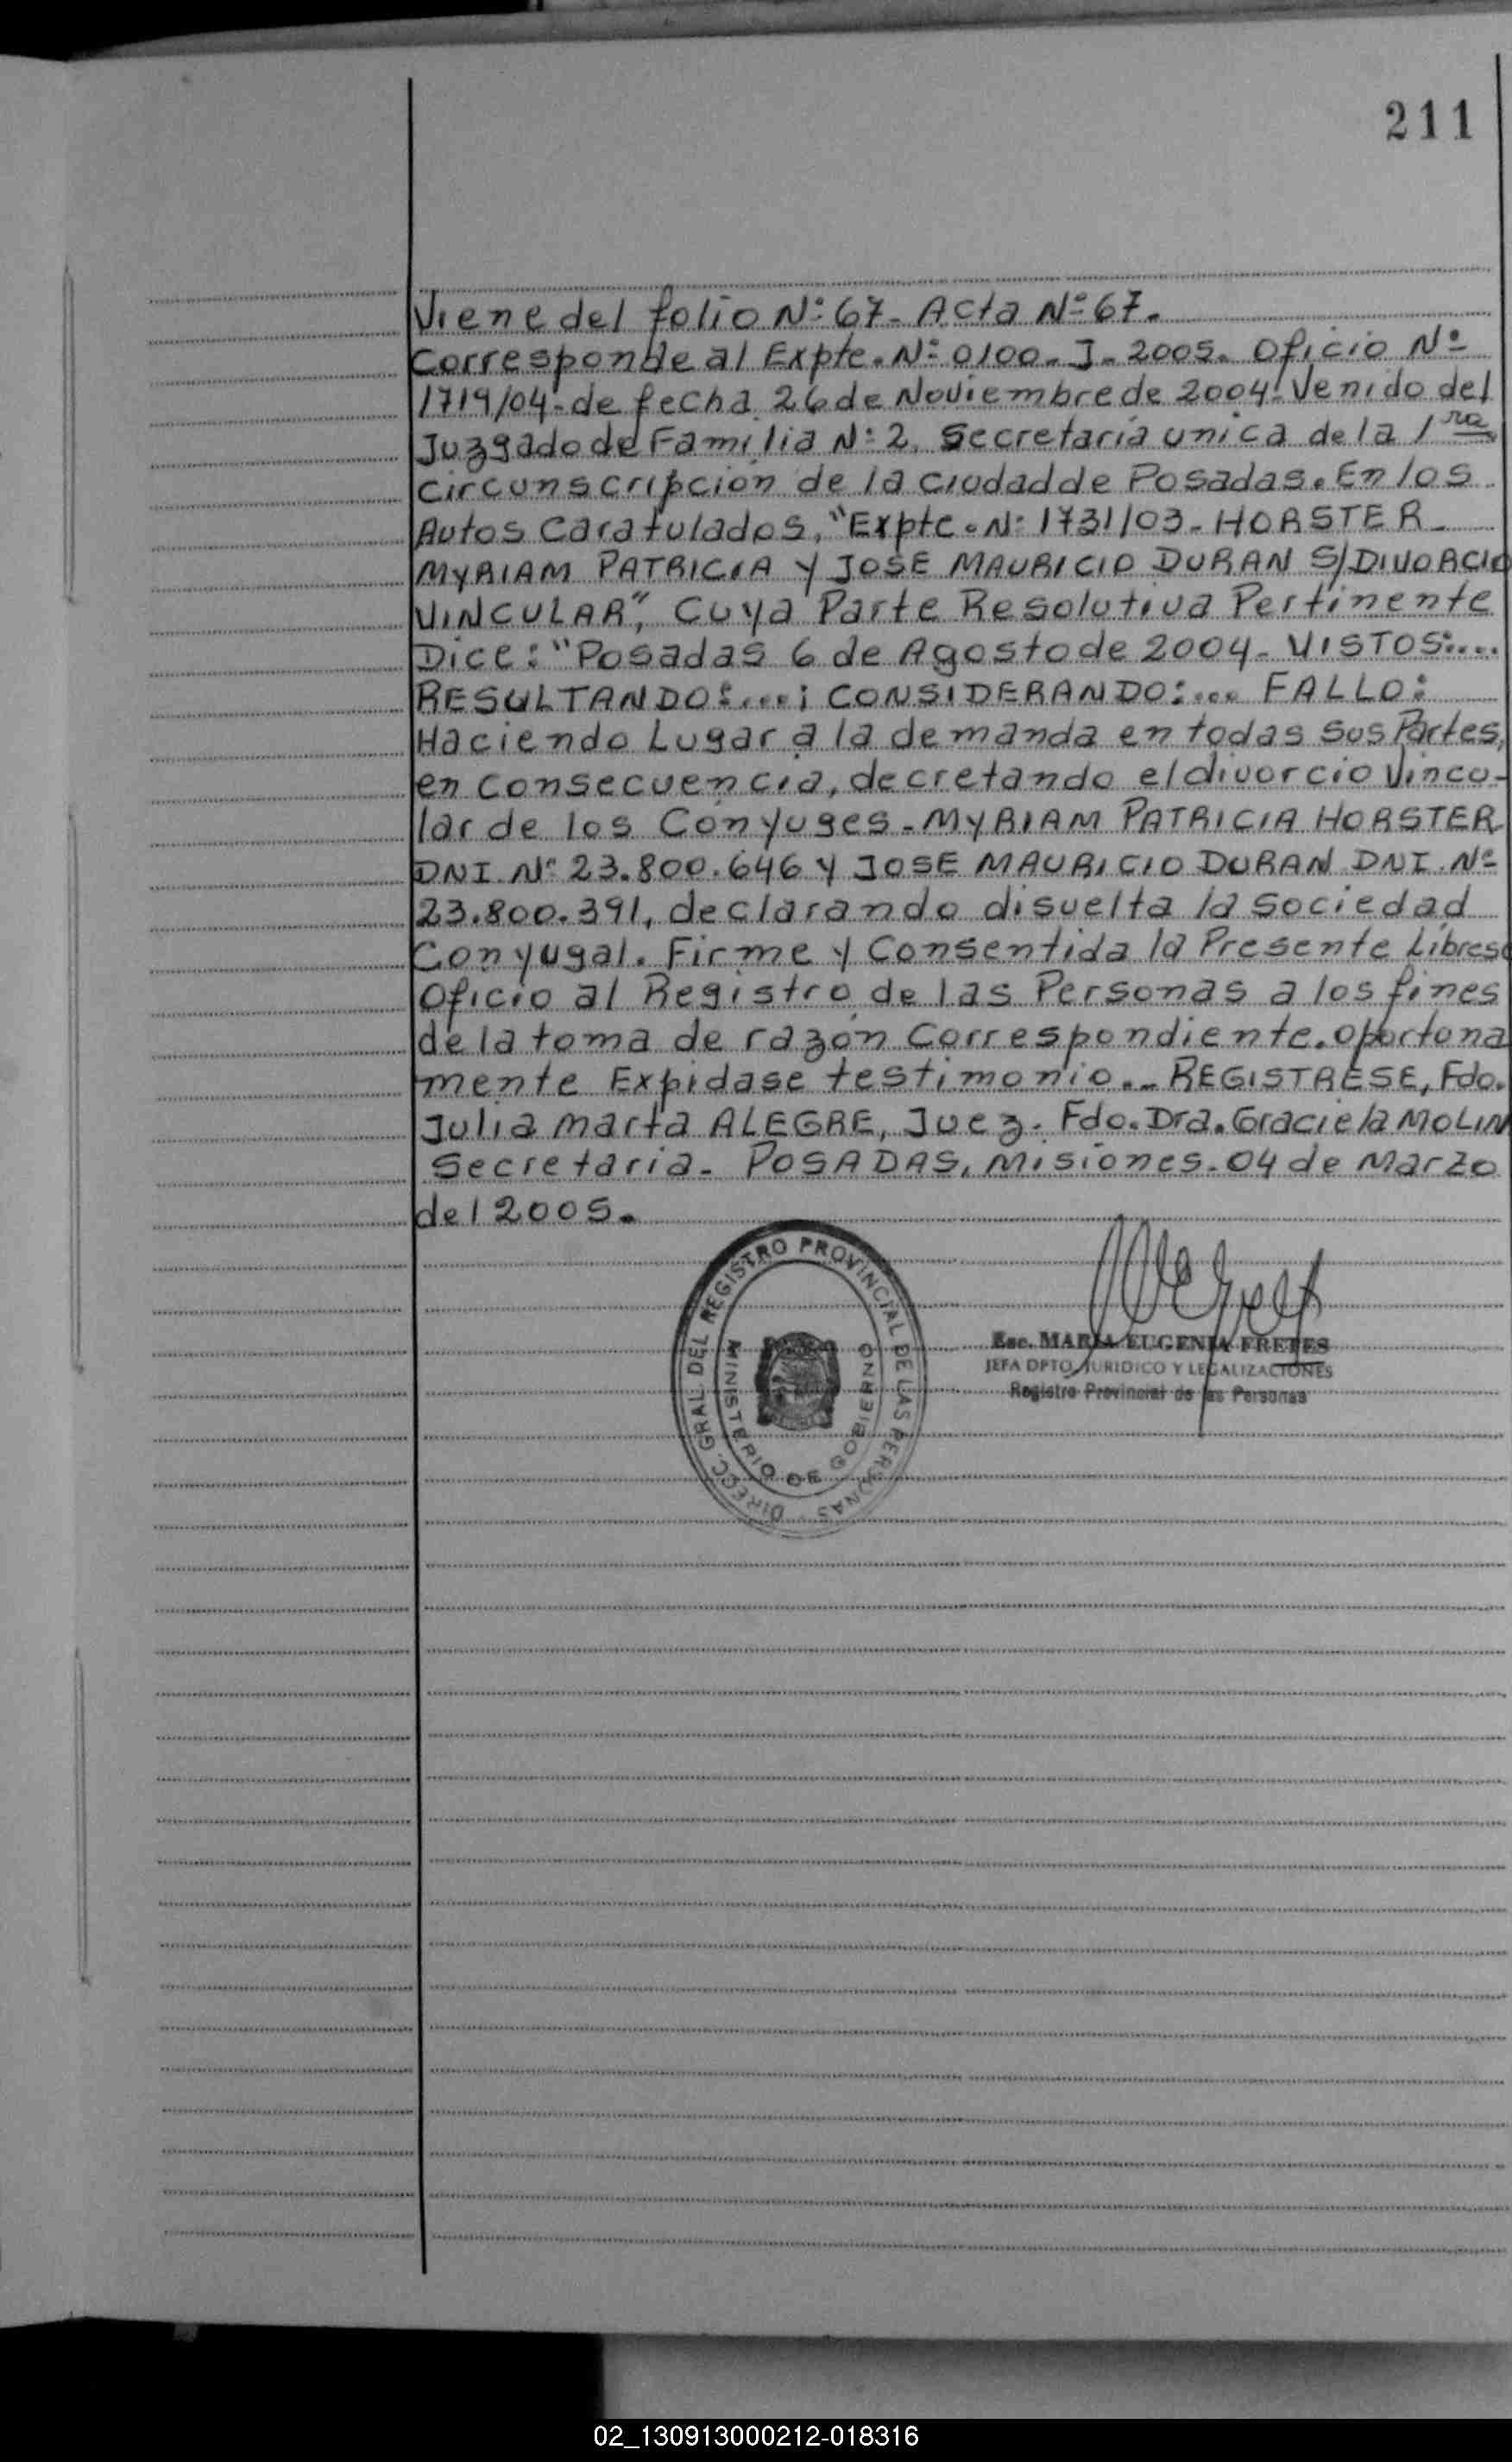 211
Viene del folio Nº 67- Acta Nº 67.
Corresponde al Expte. Nº 0100-J-2005. Oficio Nº
1719/04-de fecha 26 de Noviembre de 2004. Venido del
Juzgado de Familia Nº 2, Secretaría unica de la 1ra
Circunscripción de la Ciudad de Posadas. En los
Autos Caratulados, "Expte. Nº 1731/03- HORSTER
MYRIAM PATRICIA Y JOSE MAURICIO DURAN S/DIVORCIO
VINCULAR", Cuya Parte Resolutiva Pertinente
Dice: "Posadas 6 de Agosto de 2004- VISTOS:....
RESULTANDO:....; CONSIDERANDO:... FALLO:
Haciendo Lugar a la demanda en todas sus Partes,
en Consecuencia, decretando el divorcio Vincu-
lar de los Cónyuges- MYRIAM PATRICIA HORSTER
DNI. Nº 23.800.646 y JOSE MAURICIO DURAN DNI. Nº
23.800.391, declarando disuelta la Sociedad
Conyugal. Firme y Consentida la Presente Librese
Oficio al Registro de las Personas a los fines
de la toma de razón Correspondiente. Oportuna
mente Expidase testimonio.- REGISTRESE, Fdo.
Julia Marta ALEGRE, Juez. Fdo. Dra. Graciela MOLIN
Secretaria- POSADAS, Misiones- 04 de Marzo
del 2005.
DIRECC. GRAL. DEL REGISTRO PROVINCIAL DE LAS PERSONAS
MINISTERIO DE GOBIERNO
Esc. MARIA EUGENIA FRETES
JEFA DPTO. JURIDICO Y LEGALIZACIONES
Registro Provincial de las Personas
02_130913000212-018316